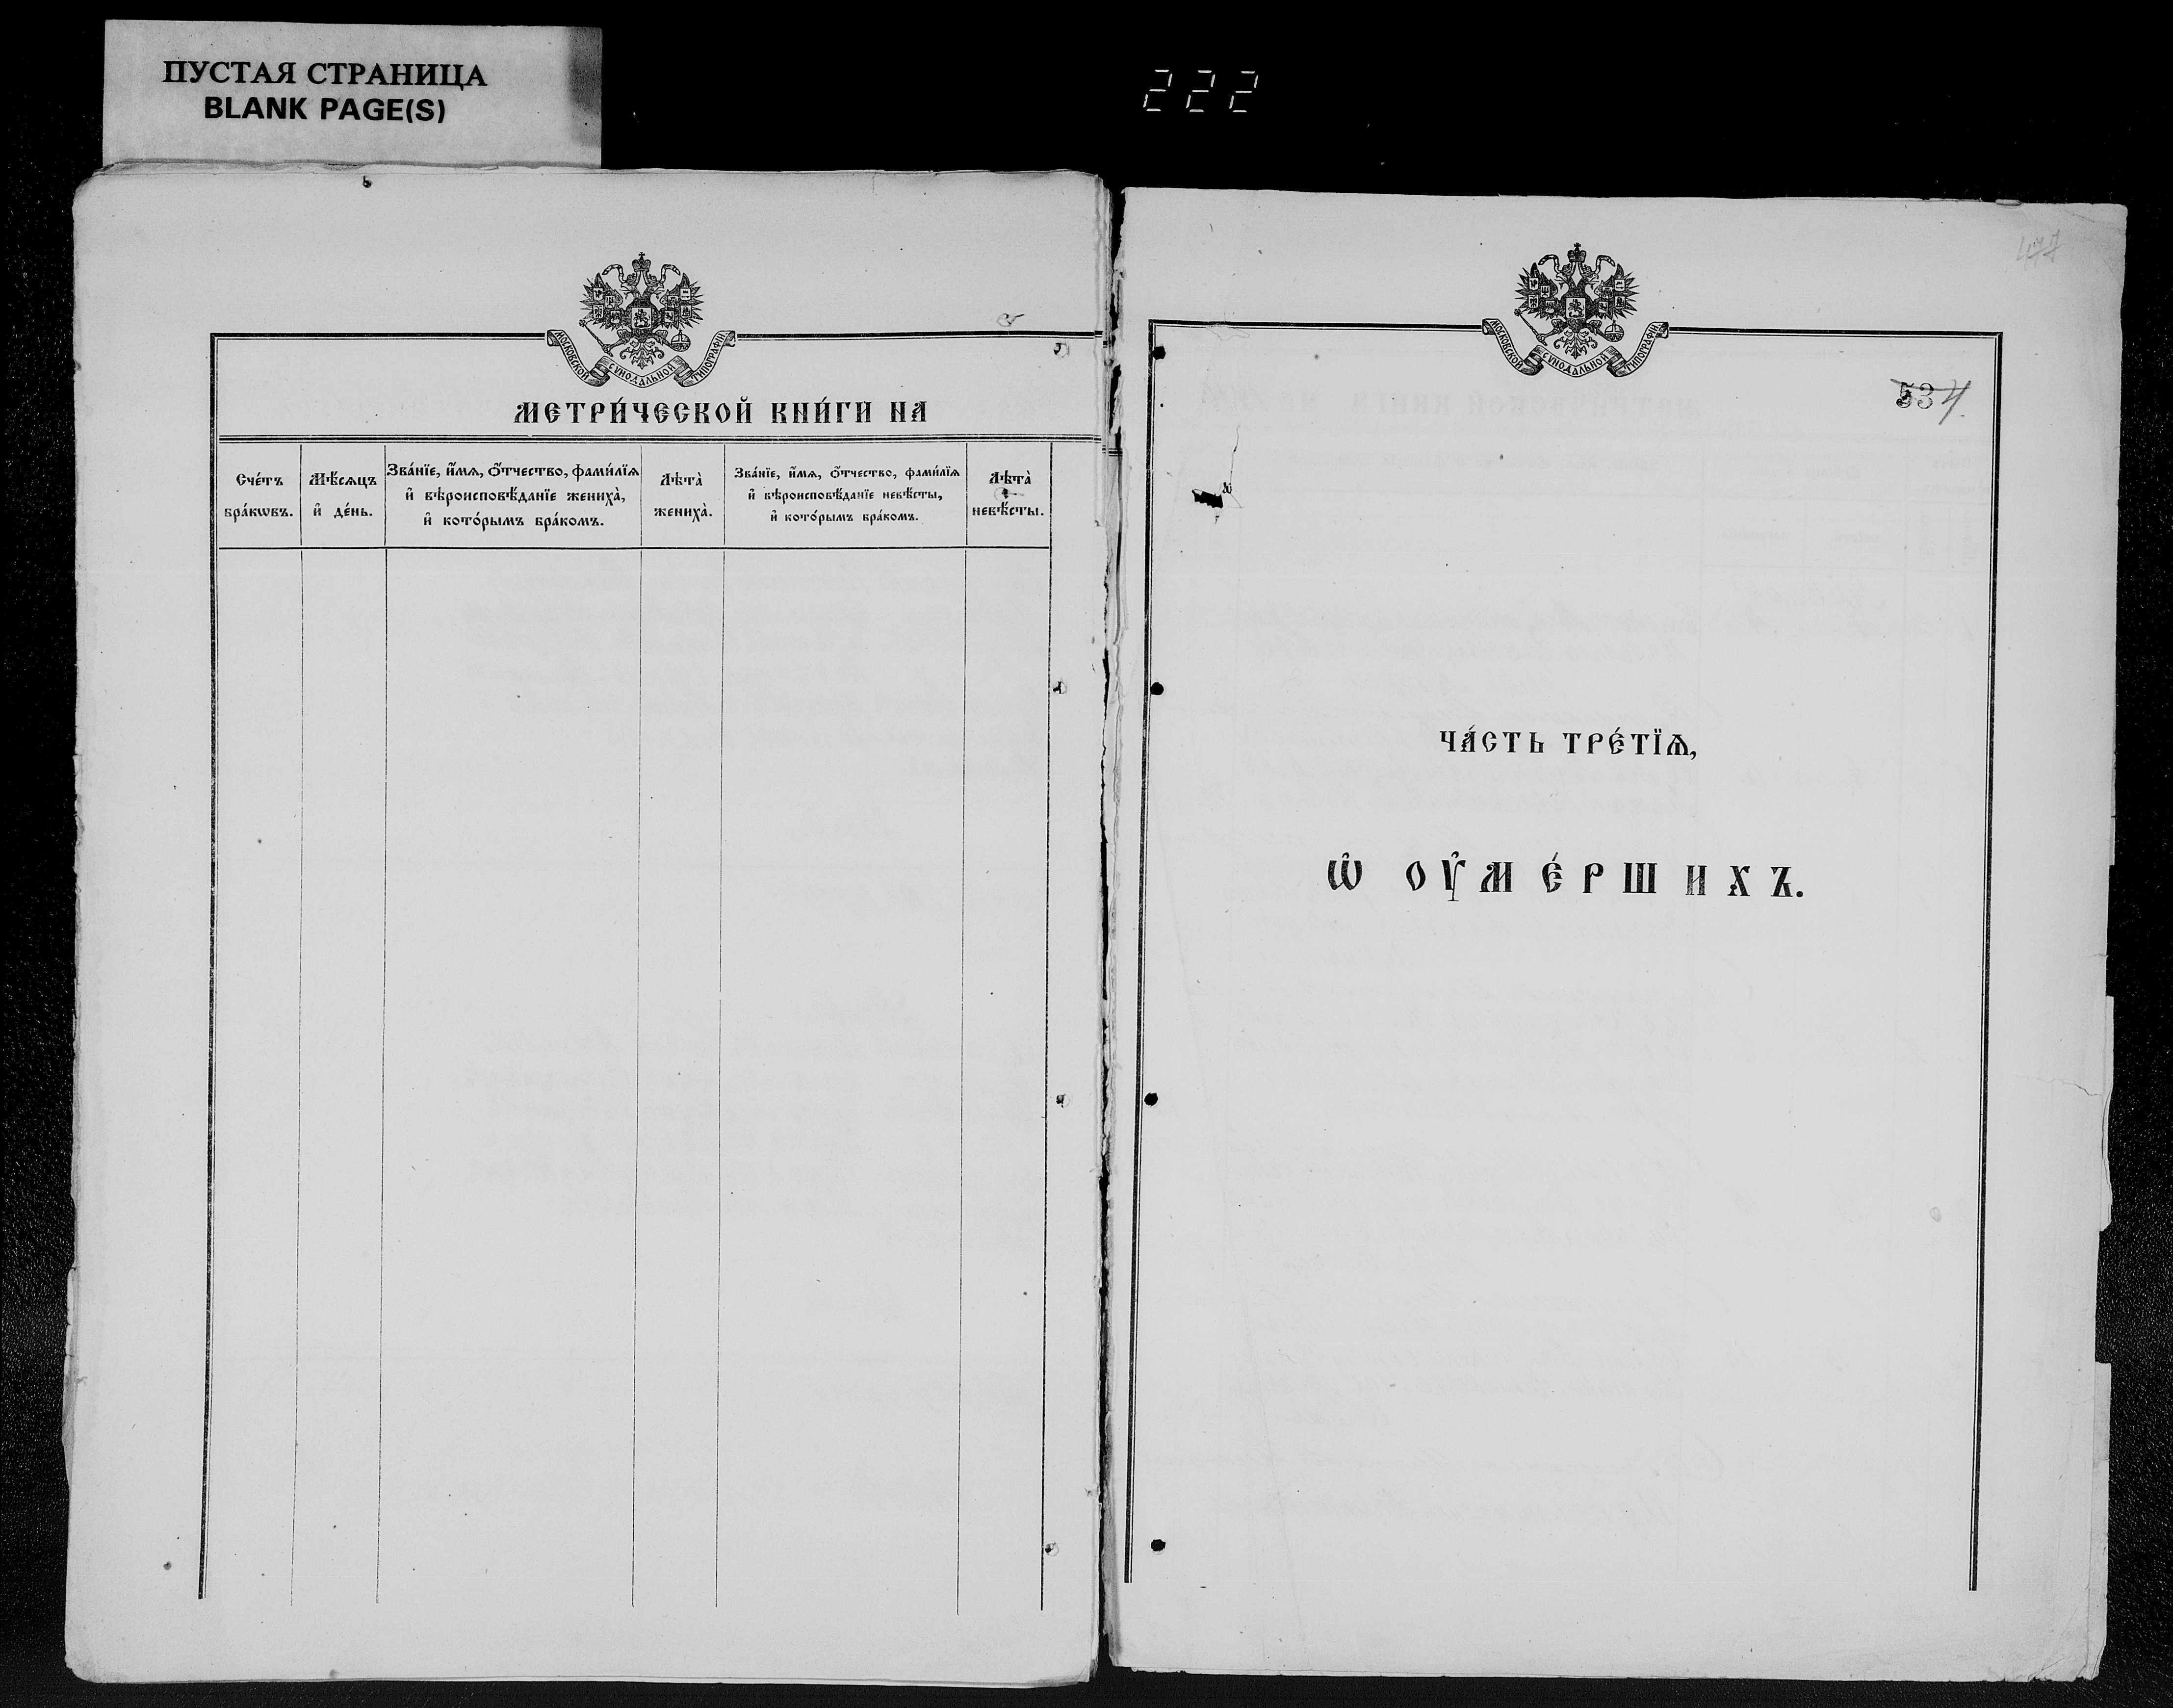 ПУСТАЯ СТРАНИЦА
BLANK PAGE(S)
222
МОСКОВСКОЙ СѴНОДАЛЬНОЙ ТИПОГРАФІИ
МЕТРИ́ЧЕСКОЙ КНИ́ГИ НА
Сче́тъ
бра́кѡвъ.
Мѣ́сѧцъ
и҆ де́нь.
Зва́нїе, и҆́мѧ, ѻ҆́тчество, фами́лїѧ
и҆ вѣроисповѣ́данїе жениха̀,
и҆ кото́рымъ бра́комъ.
Лѣта̀
жениха̀.
Зва́нїе, и҆́мѧ, ѻ҆́тчество, фами́лїѧ
и҆ вѣроисповѣ́данїе невѣ́сты,
и҆ кото́рымъ бра́комъ.
Лѣта̀
невѣ́сты.
477
МОСКОВСКОЙ СѴНОДАЛЬНОЙ ТИПОГРАФІИ
534
ЧА́СТЬ ТРЕ́ТЇѦ,
Ѡ҆ ОУ҆МЕ́РШИХЪ.